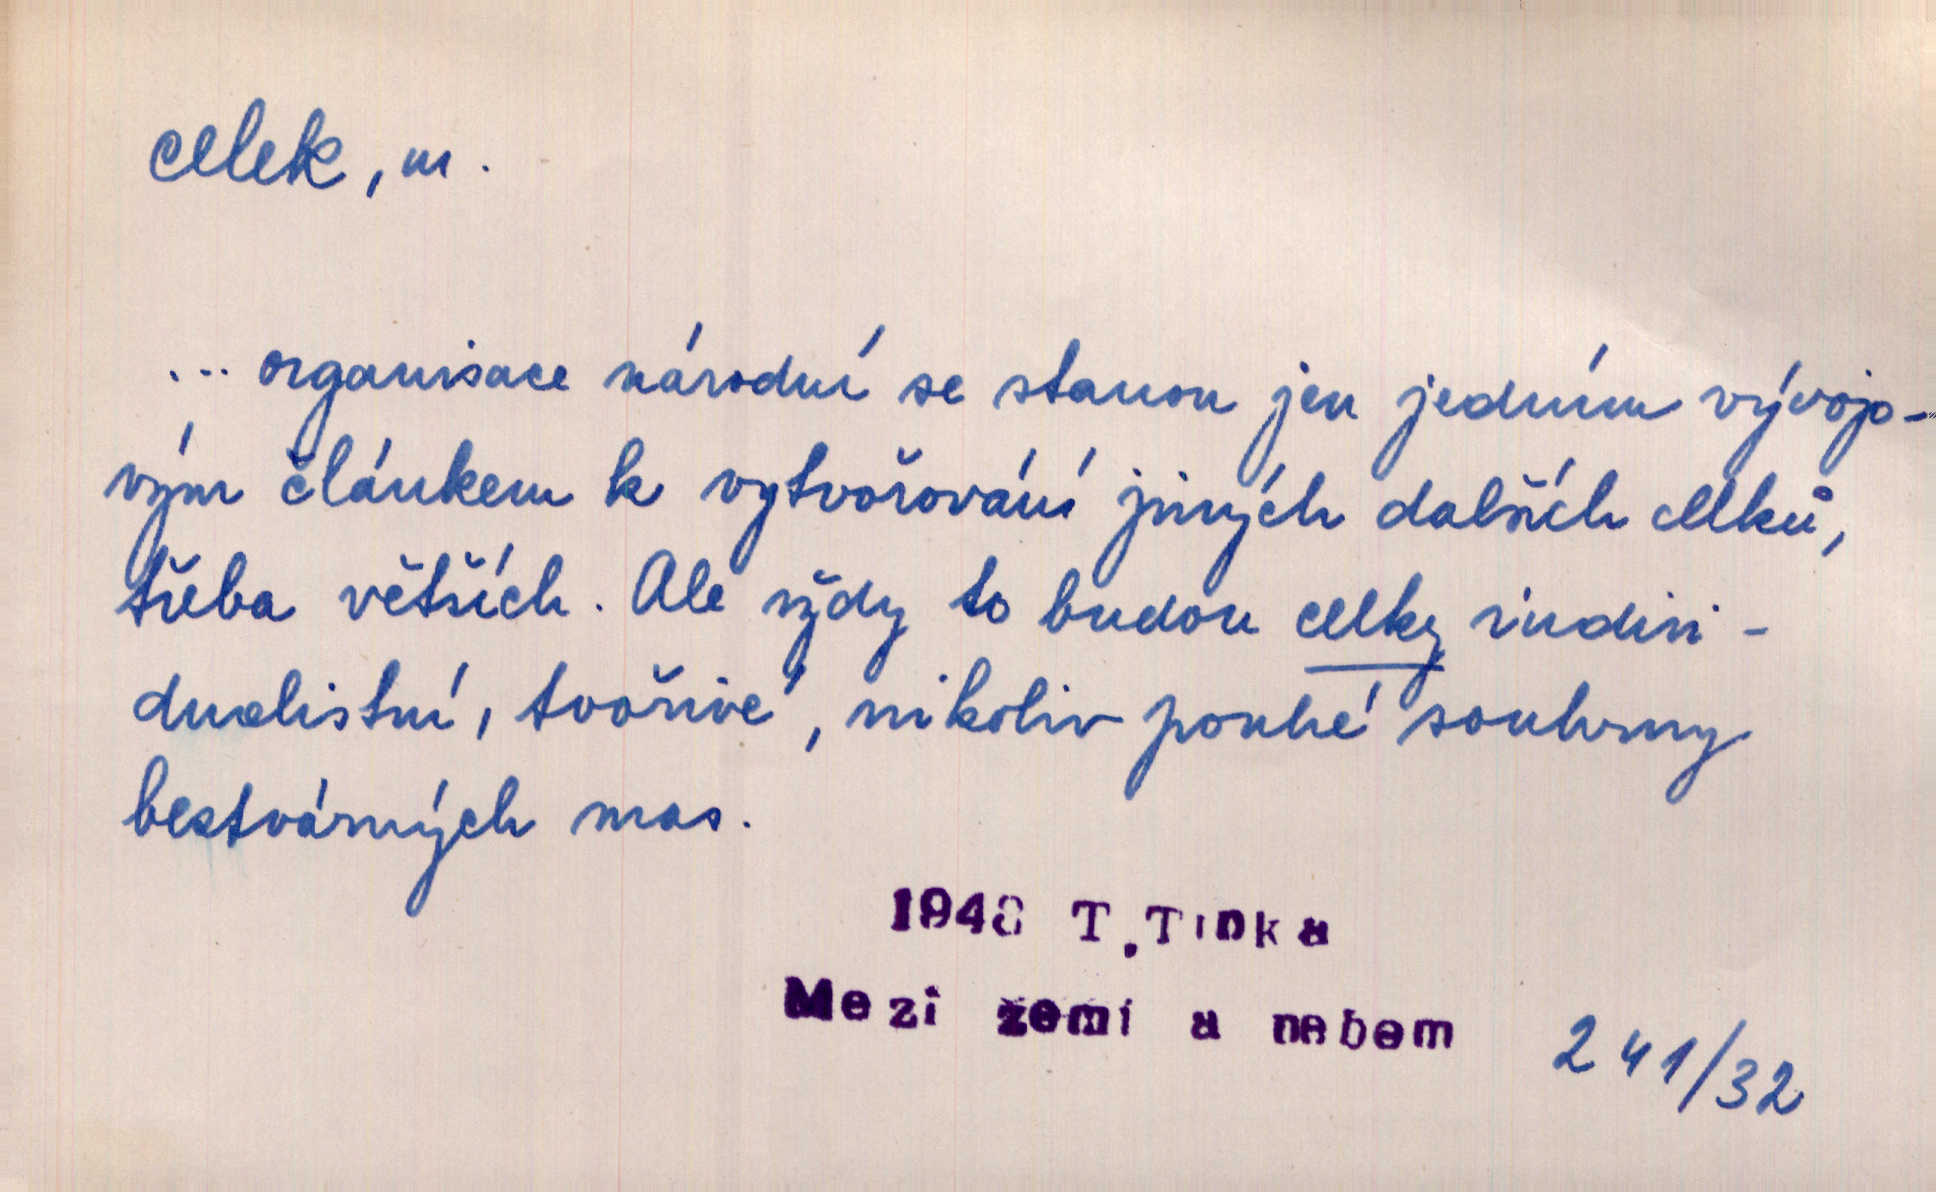 celek, m.
... organisace národní se stanou jen jedním vývojo-
vým článkem k vytvořování jiných dalších celků,
třeba větších. Ale vždy to budou celky indivi-
dualistní, tvořivé, nikoliv pouhé souhrny
beztvárných mas.
1948 T.Tinka
Mezi zemí a nebem
241/32